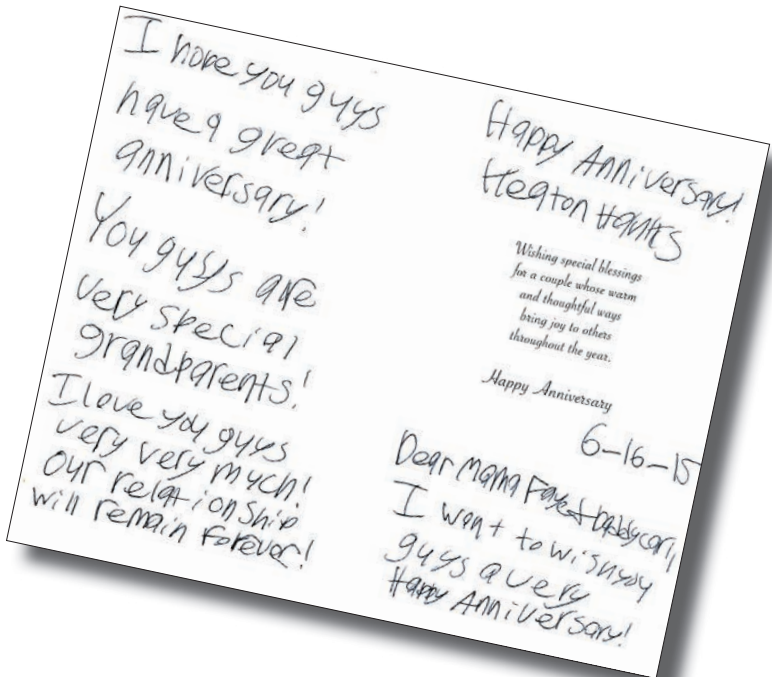 I hope you guys
have a great
anniversary!
You guys are
very special
grandparents!
I love you guys
very very much!
our relationship
will remain forever!
Happy Anniversary!
Heaton Hanks
Wishing special blessings
for a couple whose warm
and thoughtful ways
bring joy to others
throughout the year.
Happy Anniversary
6-16-15
Dear Mama Faye & Daddy Carl,
I want to wish you
guys a very
Happy Anniversary!